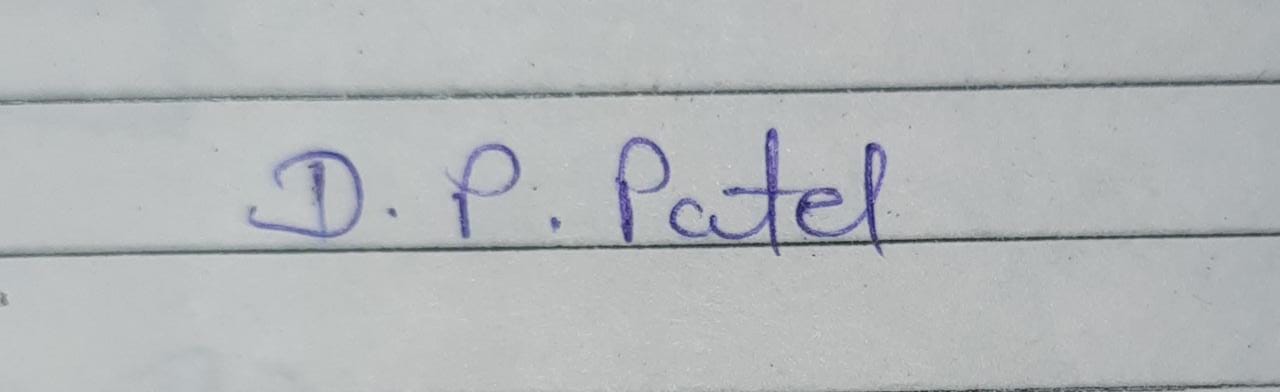 D. P. Patel